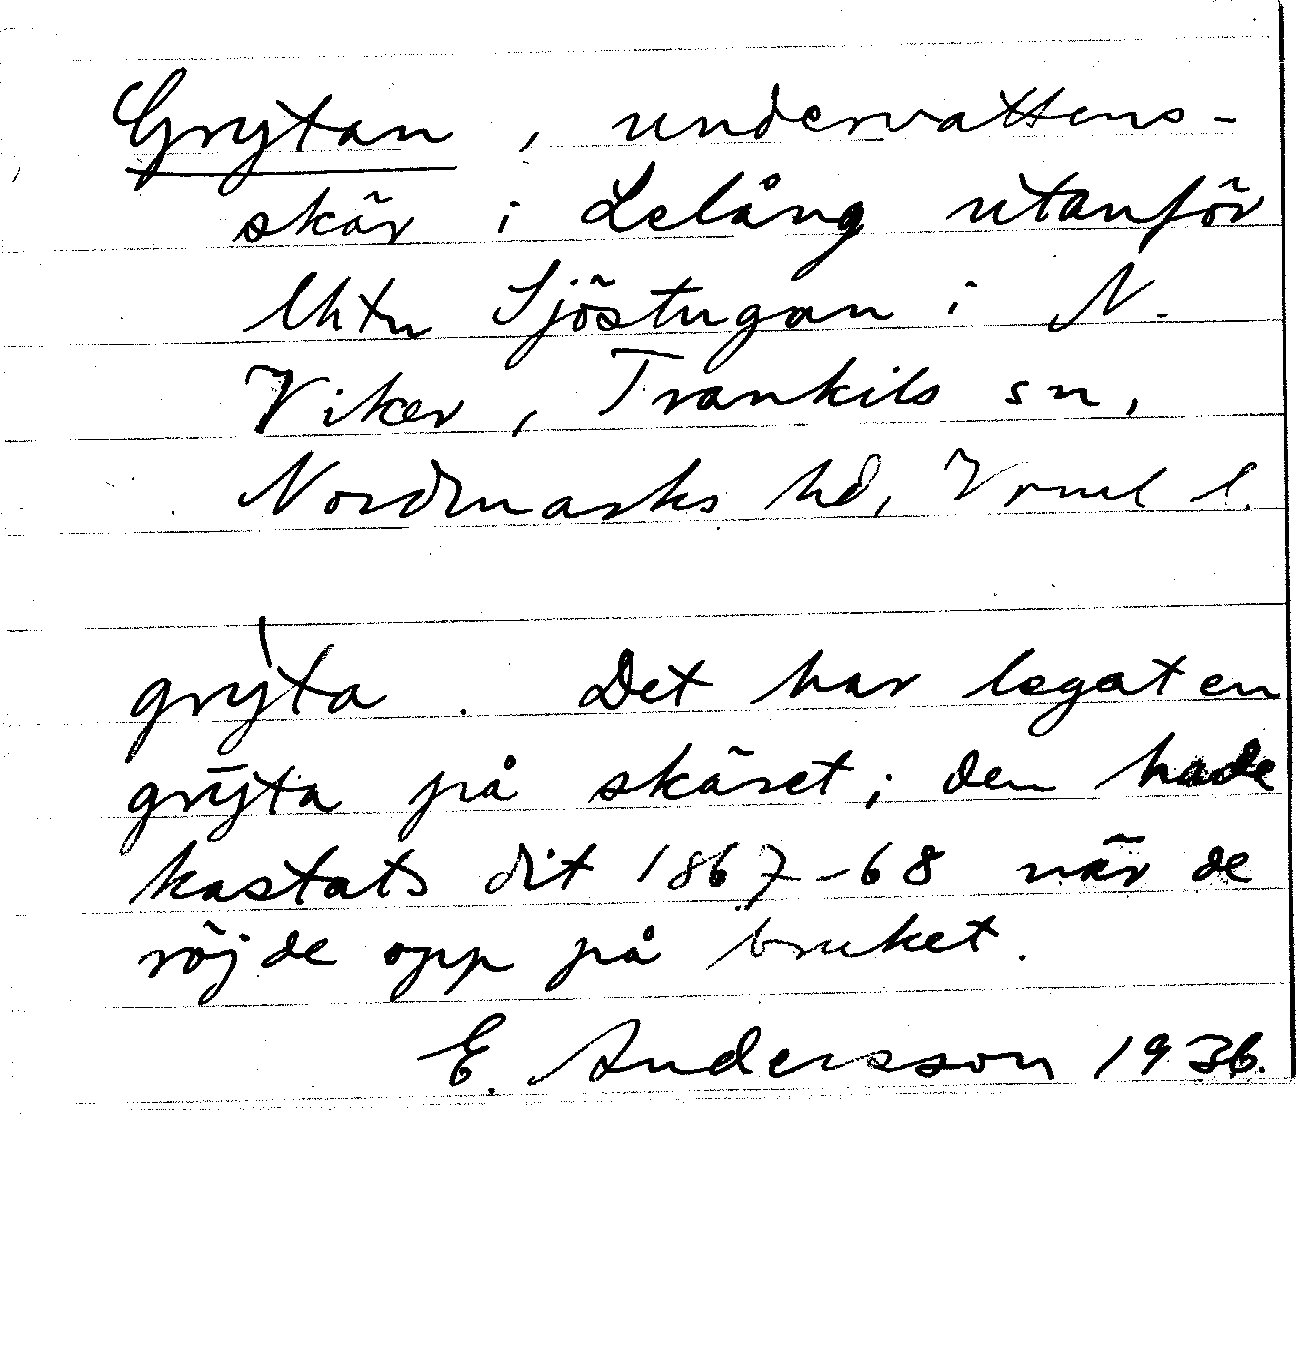 Grytan, undervattens-
skär i Lelång utanför
lhtn Sjöstugan i N.
Viker, Trankils sn,
Nordmarks hd, Vrml l.
gryta. Det har legat en
gryta på skäret; den hade
kastats dit 1867-68 när de
röjde opp på bruket.
E. Andersson 1936.